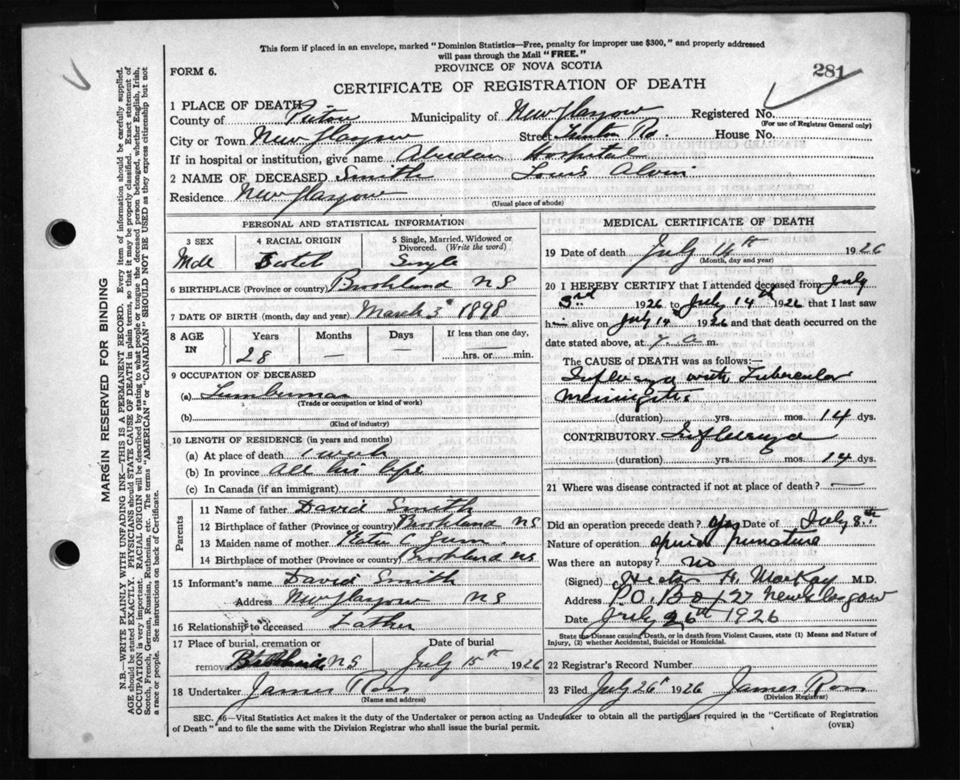 This form if placed in an envelope, marked "Dominion Statistics—Free, penalty for improper use $300," and properly addressed
will pass through the Mail "FREE."
PROVINCE OF NOVA SCOTIA
FORM 6.
281
CERTIFICATE OF REGISTRATION OF DEATH
1 PLACE OF DEATH
County of Pictou Municipality of New Glasgow Registered No.
(For use of Registrar General only)
City or Town New Glasgow Street Rd. House No.
If in hospital or institution, give name Aberdeen Hospital
2 NAME OF DECEASED Smith Louis Alvin
Residence New Glasgow
(Usual place of abode)
PERSONAL AND STATISTICAL INFORMATION
3 SEX 4 RACIAL ORIGIN 5 Single, Married, Widowed or
Divorced. (Write the word)
Male Scotch Single
6 BIRTHPLACE (Province or country) Brookland NS
7 DATE OF BIRTH (month, day and year) March 3 1898
8 AGE IN Years Months Days If less than one day,
28 — — — hrs. or min.
9 OCCUPATION OF DECEASED
(a) Lumberman
(Trade or occupation or kind of work)
(b)
(Kind of industry)
10 LENGTH OF RESIDENCE (in years and months)
(a) At place of death 1 week
(b) In province all his life
(c) In Canada (if an immigrant)
Parents
11 Name of father David Smith
12 Birthplace of father (Province or country) Brookland NS
13 Maiden name of mother C
14 Birthplace of mother (Province or country) Brookland NS
15 Informant's name David Smith
Address New Glasgow NS
16 Relationship to deceased Father
17 Place of burial, cremation or Date of burial
removal Brookland NS July 15th 1926
18 Undertaker James Ross
(Name and address)
MEDICAL CERTIFICATE OF DEATH
19 Date of death July 14th 1926
(Month, day and year)
20 I HEREBY CERTIFY that I attended deceased from July
3rd 1926 to July 14th 1926 that I last saw
him alive on July 14 1926 and that death occurred on the
date stated above, at 7 a.m.
The CAUSE of DEATH was as follows:—
Influenza with Tubercular
Meningitis
(duration) yrs. mos. 14 dys.
CONTRIBUTORY Influenza
(duration) yrs. mos. 14 dys.
21 Where was disease contracted if not at place of death? —
Did an operation precede death? yes Date of July 8th
Nature of operation spinal puncture
Was there an autopsy? no
(Signed) H. MacKay M.D.
Address P.O. Box 127 New Glasgow
Date July 26th 1926
State the Disease causing Death, or in death from Violent Causes, state (1) Means and Nature of
Injury, (2) whether Accidental, Suicidal or Homicidal.
22 Registrar's Record Number
23 Filed July 26th 1926 James Ross
(Division Registrar)
SEC. 46—Vital Statistics Act makes it the duty of the Undertaker or person acting as Undertaker to obtain all the particulars required in the "Certificate of Registration
of Death" and to file the same with the Division Registrar who shall issue the burial permit.
(OVER)
MARGIN RESERVED FOR BINDING
N.B.—WRITE PLAINLY WITH UNFADING INK—THIS IS A PERMANENT RECORD. Every item of information should be carefully supplied.
AGE should be stated EXACTLY. PHYSICIANS should STATE CAUSE OF DEATH in plain terms, so that it may be properly classified. Exact statement of
OCCUPATION is very important. RACIAL ORIGIN will be described by stating to what people or tongue the deceased person belonged, whether English, Irish,
Scotch, French, German, Russian, Ruthenian, etc. The terms "AMERICAN" or "CANADIAN" SHOULD NOT BE USED as they express citizenship but not
a race or people. See instructions on back of Certificate.